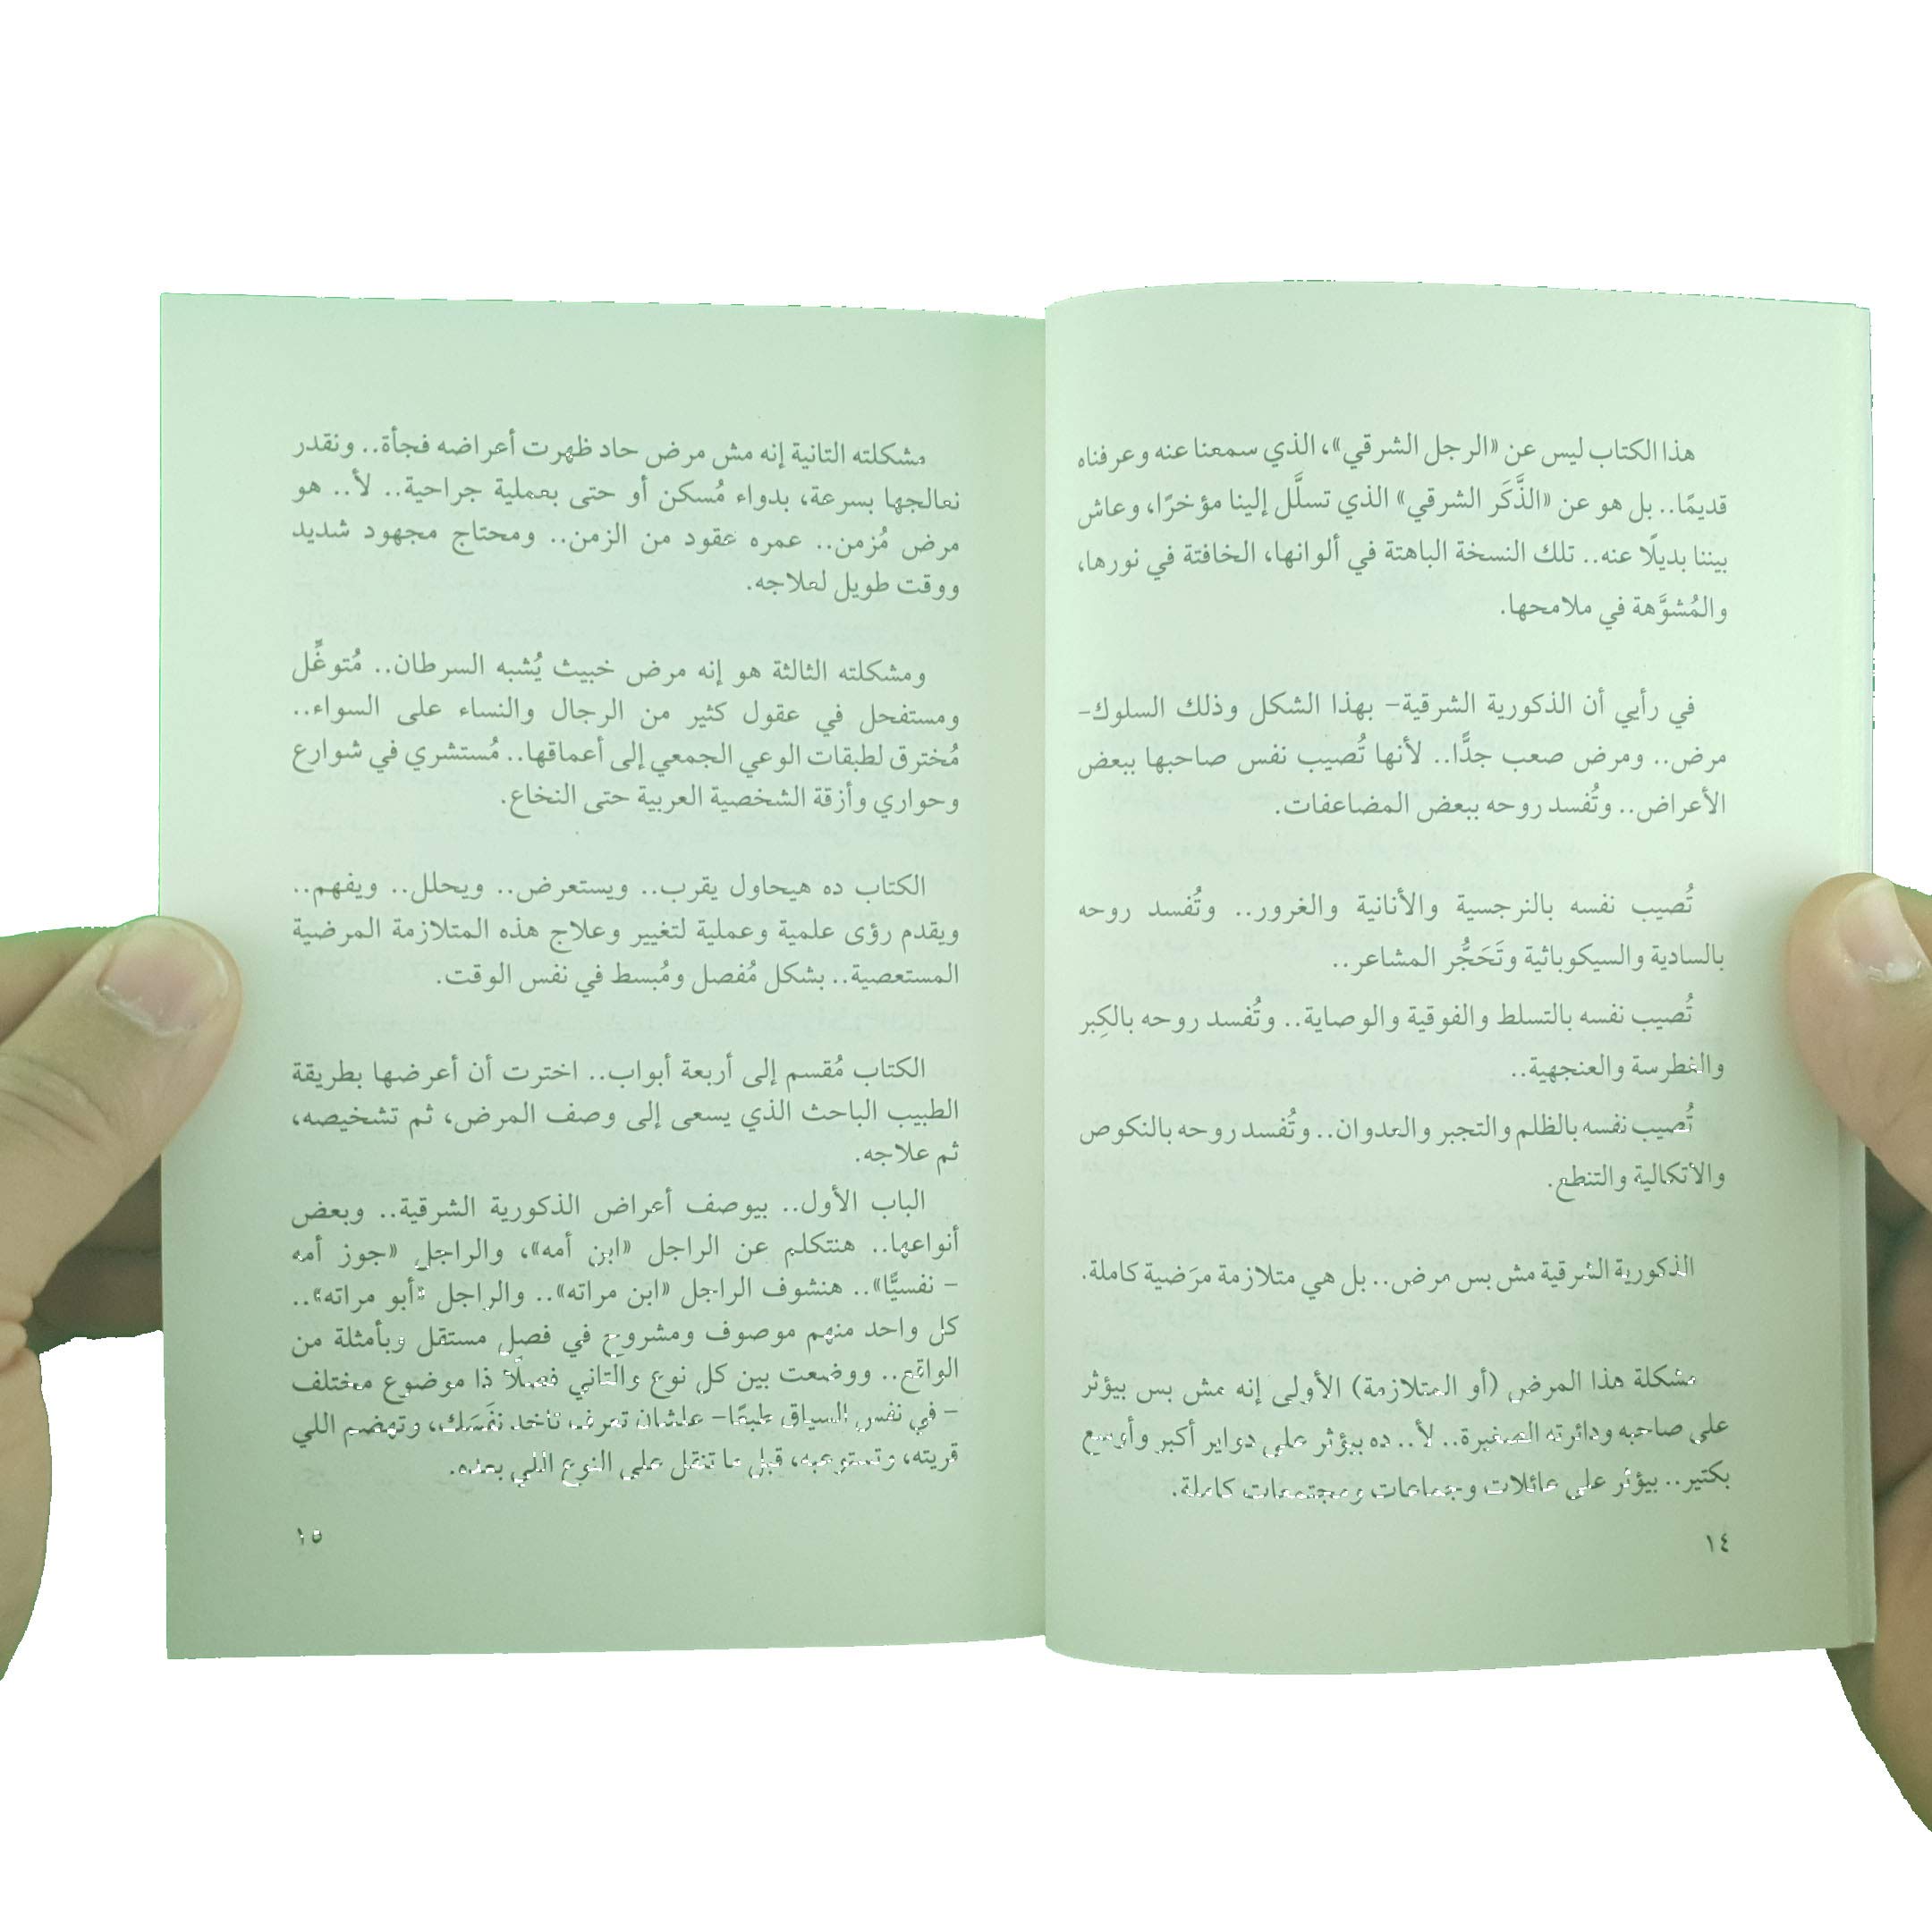 هذا الكتاب ليس عن «الرجل الشرقي»، الذي سمعنا عنه وعرفناه
قديمًا.. بل هو عن «الذَّكَر الشرقي» الذي تسلَّل إلينا مؤخرًا، وعاش
بيننا بديلًا عنه.. تلك النسخة الباهتة في ألوانها، الخافتة في نورها،
والمُشوَّهة في ملامحها.
في رأيي أن الذكورية الشرقية- بهذا الشكل وذلك السلوك-
مرض.. ومرض صعب جدًّا.. لأنها تُصيب نفس صاحبها ببعض
الأعراض.. وتُفسد روحه ببعض المضاعفات.
تُصيب نفسه بالنرجسية والأنانية والغرور.. وتُفسد روحه
بالسادية والسيكوباثية وتَحَجُّر المشاعر..
تُصيب نفسه بالتسلط والفوقية والوصاية.. وتُفسد روحه بالكِبر
والغطرسة والعنجهية..
تُصيب نفسه بالظلم والتجبر والعدوان.. وتُفسد روحه بالنكوص
والاتكالية والتنطع.
الذكورية الشرقية مش بس مرض.. بل هي متلازمة مرَضية كاملة.
مشكلة هذا المرض (أو المتلازمة) الأولى إنه مش بس بيؤثر
على صاحبه ودائرته الصغيرة.. لأ.. ده بيؤثر على دواير أكبر وأوسع
بكتير.. بيؤثر على عائلات وجماعات ومجتمعات كاملة.
١٤
مشكلته التانية إنه مش مرض حاد ظهرت أعراضه فجأة.. ونقدر
نعالجها بسرعة، بدواء مُسكن أو حتى بعملية جراحية.. لأ.. هو
مرض مُزمن.. عمره عقود من الزمن.. ومحتاج مجهود شديد
ووقت طويل لعلاجه.
ومشكلته الثالثة هو إنه مرض خبيث يُشبه السرطان.. مُتوغِّل
ومستفحل في عقول كثير من الرجال والنساء على السواء..
مُخترق لطبقات الوعي الجمعي إلى أعماقها.. مُستشري في شوارع
وحواري وأزقة الشخصية العربية حتى النخاع.
الكتاب ده هيحاول يقرب.. ويستعرض.. ويحلل.. ويفهم..
ويقدم رؤى علمية وعملية لتغيير وعلاج هذه المتلازمة المرضية
المستعصية.. بشكل مُفصل ومُبسط في نفس الوقت.
الكتاب مُقسم إلى أربعة أبواب.. اخترت أن أعرضها بطريقة
الطبيب الباحث الذي يسعى إلى وصف المرض، ثم تشخيصه،
ثم علاجه.
الباب الأول.. بيوصف أعراض الذكورية الشرقية.. وبعض
أنواعها.. هنتكلم عن الراجل «ابن أمه»، والراجل «جوز أمه
- نفسيًّا».. هنشوف الراجل «ابن مراته».. والراجل «أبو مراته»..
كل واحد منهم موصوف ومشروح في فصل مستقل وبأمثلة من
الواقع.. ووضعت بين كل نوع والتاني فصلًا ذا موضوع مختلف
- في نفس السياق طبعًا- علشان تعرف تاخد نفَسَك، وتهضم اللي
قريته، وتستوعبه، قبل ما تنقل على النوع اللي بعده.
١٥